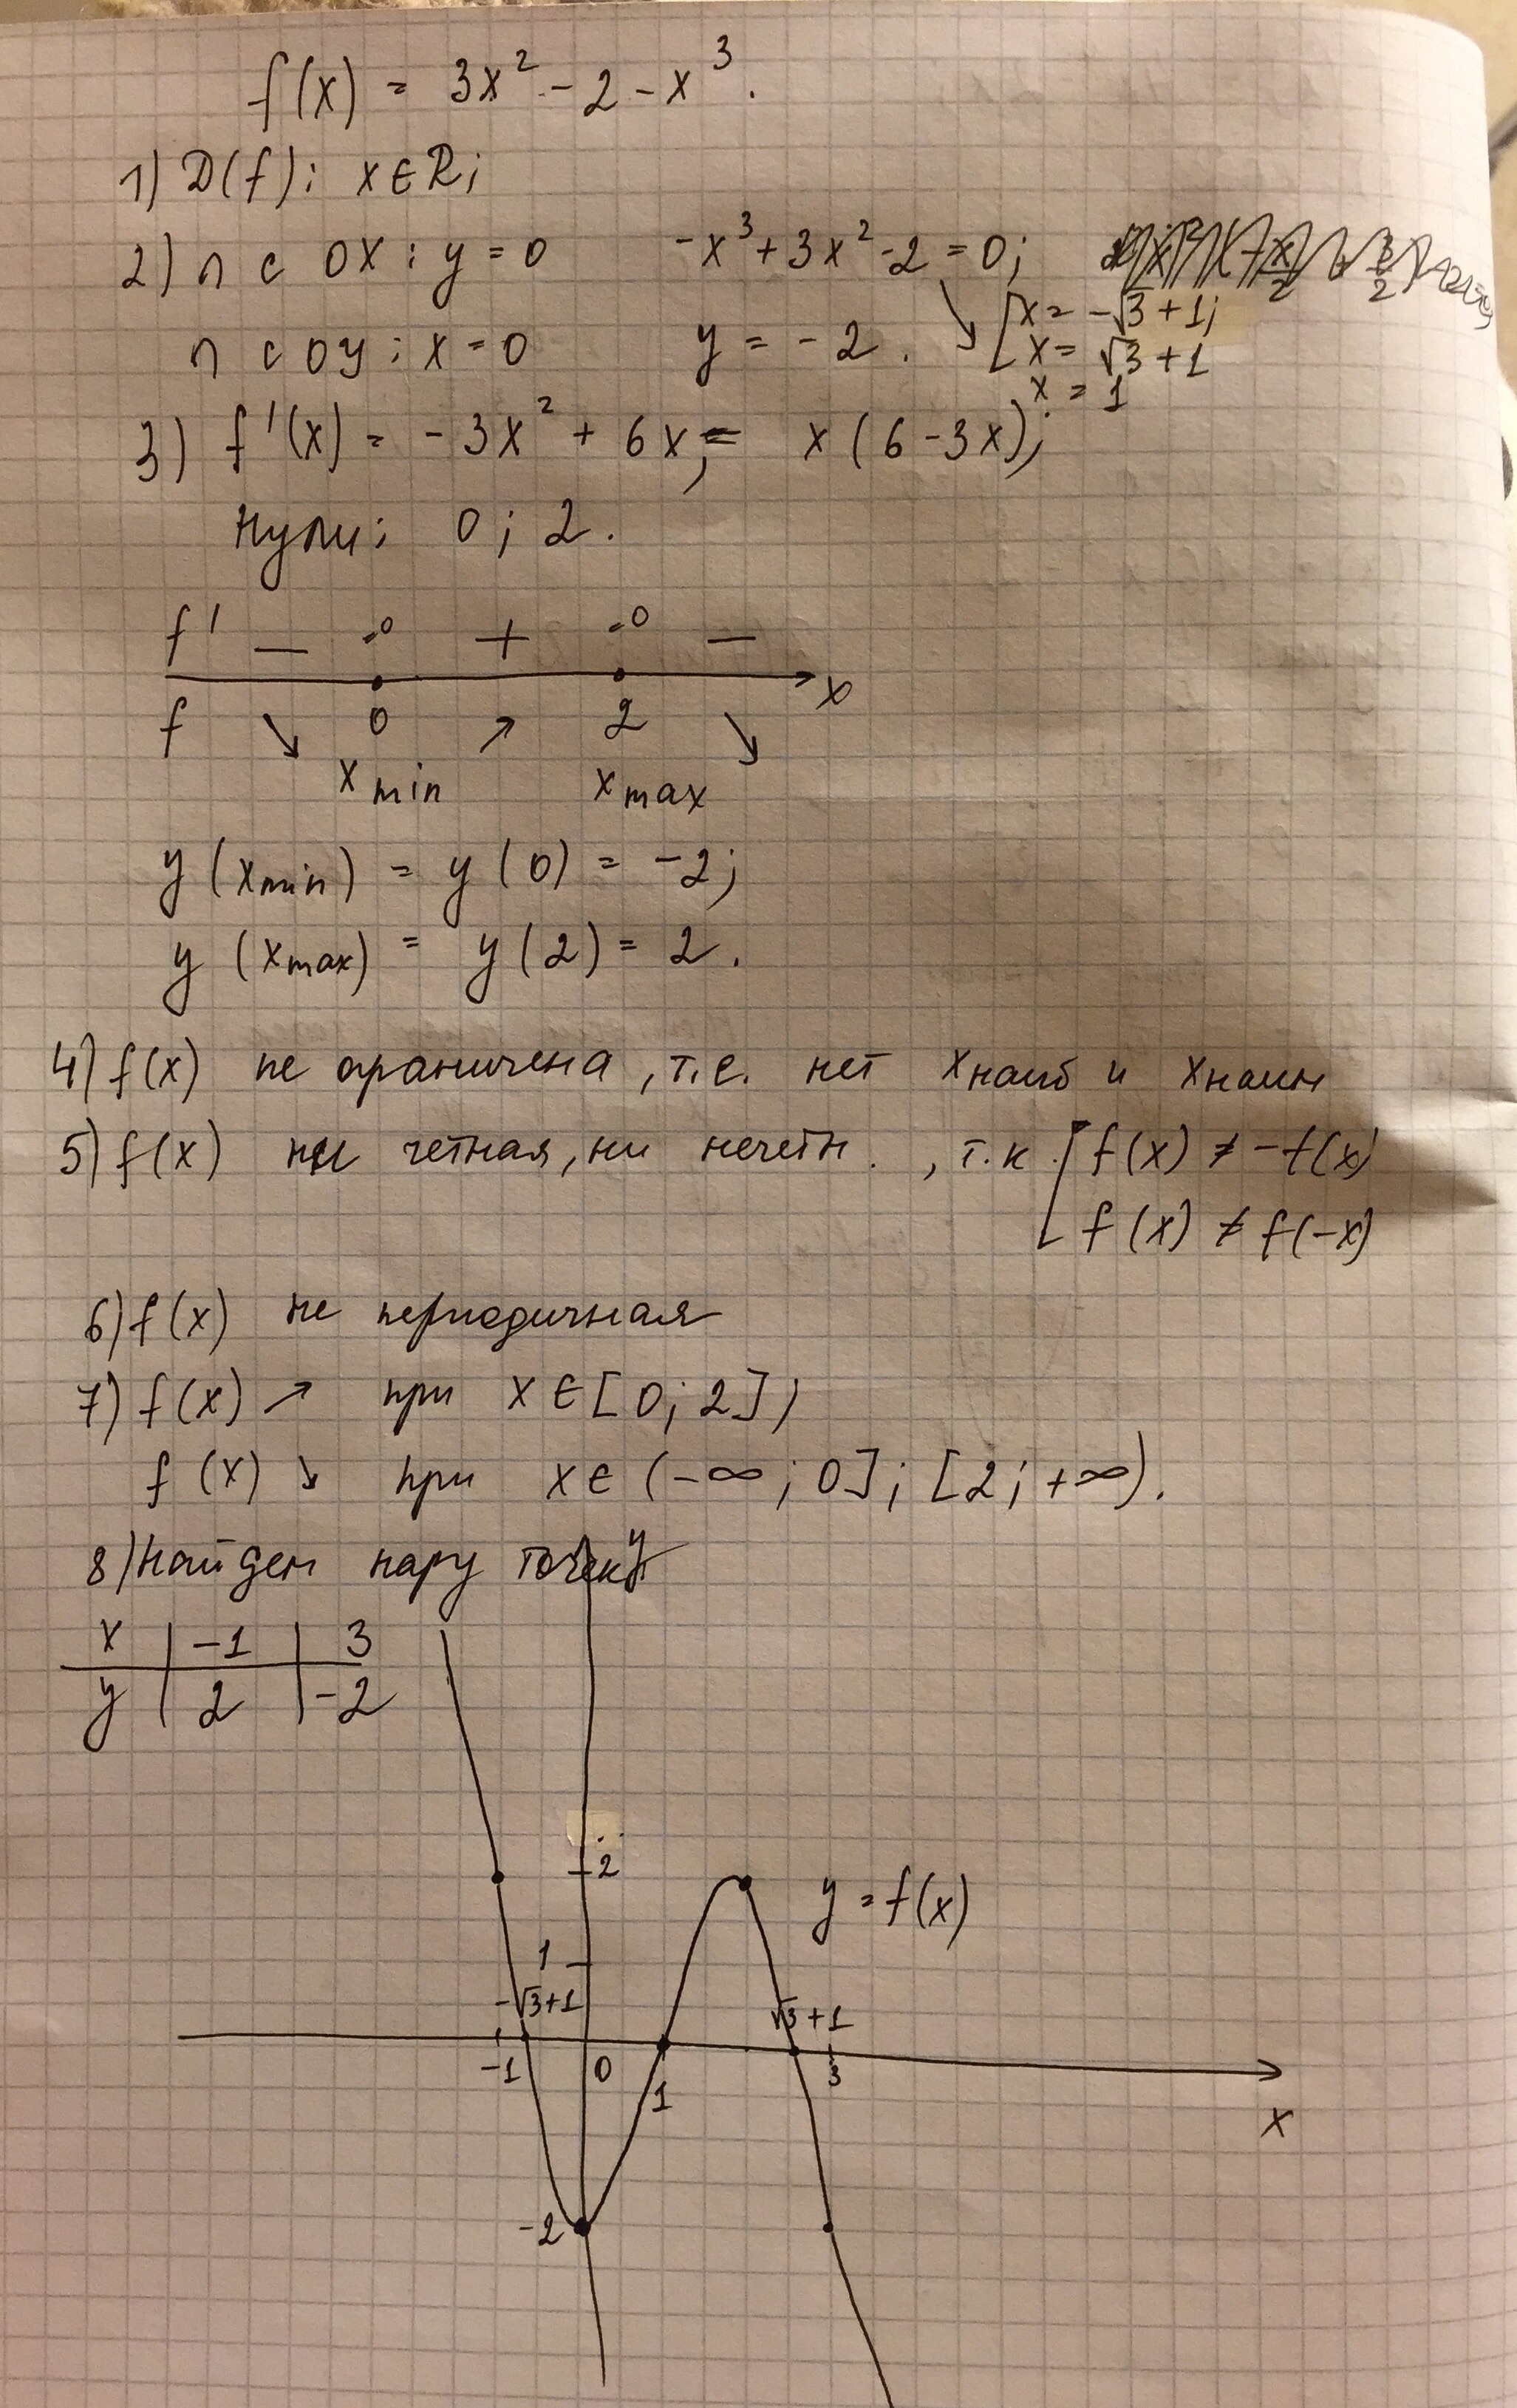 f(x) = 3x² - 2 - x³.
1) D(f): x∈R;
2) п с OX: y = 0 -x³ + 3x² - 2 = 0;
[x = -√3 + 1;
п с OY: x = 0 y = -2. ↘ x = √3 + 1
x = 1
3) f'(x) = -3x² + 6x = x(6 - 3x);
Нули: 0; 2.
f' — 0 + 0 —
x
f ↘ 0 ↗ 2 ↘
x min x max
y(x min) = y(0) = -2;
y(x max) = y(2) = 2.
4) f(x) не ограничена, т.е. нет x наиб и x наим
5) f(x) ни четная, ни нечетн., т.к. [f(x) ≠ -f(x)
f(x) ≠ f(-x)
6) f(x) не периодичная
7) f(x) ↗ при x∈[0; 2];
f(x) ↘ при x∈(-∞; 0]; [2; +∞).
8) Найдем пару точек
y
x | -1 | 3
y | 2 | -2
2
y = f(x)
1
-√3+1 √3+1
-1 0 1 3
x
-2